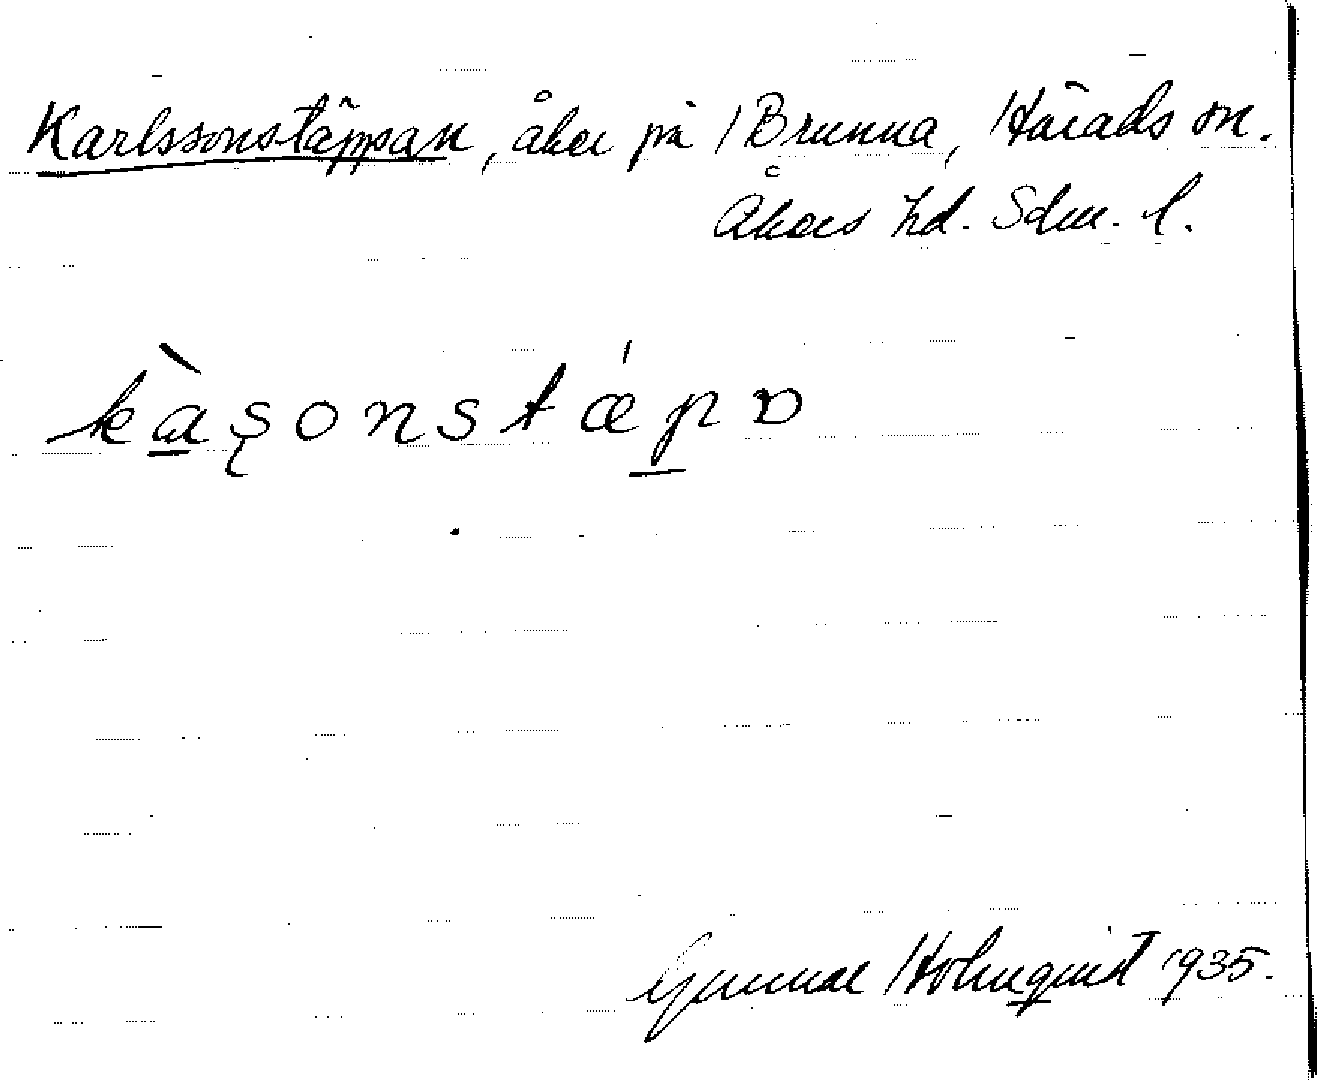 Karlssonstäppan, åker på Brunna, Härads sn.
Åkers hd. Sdm. l.
kàşonstǽpɒ
Gunnar Holmquist 1935.